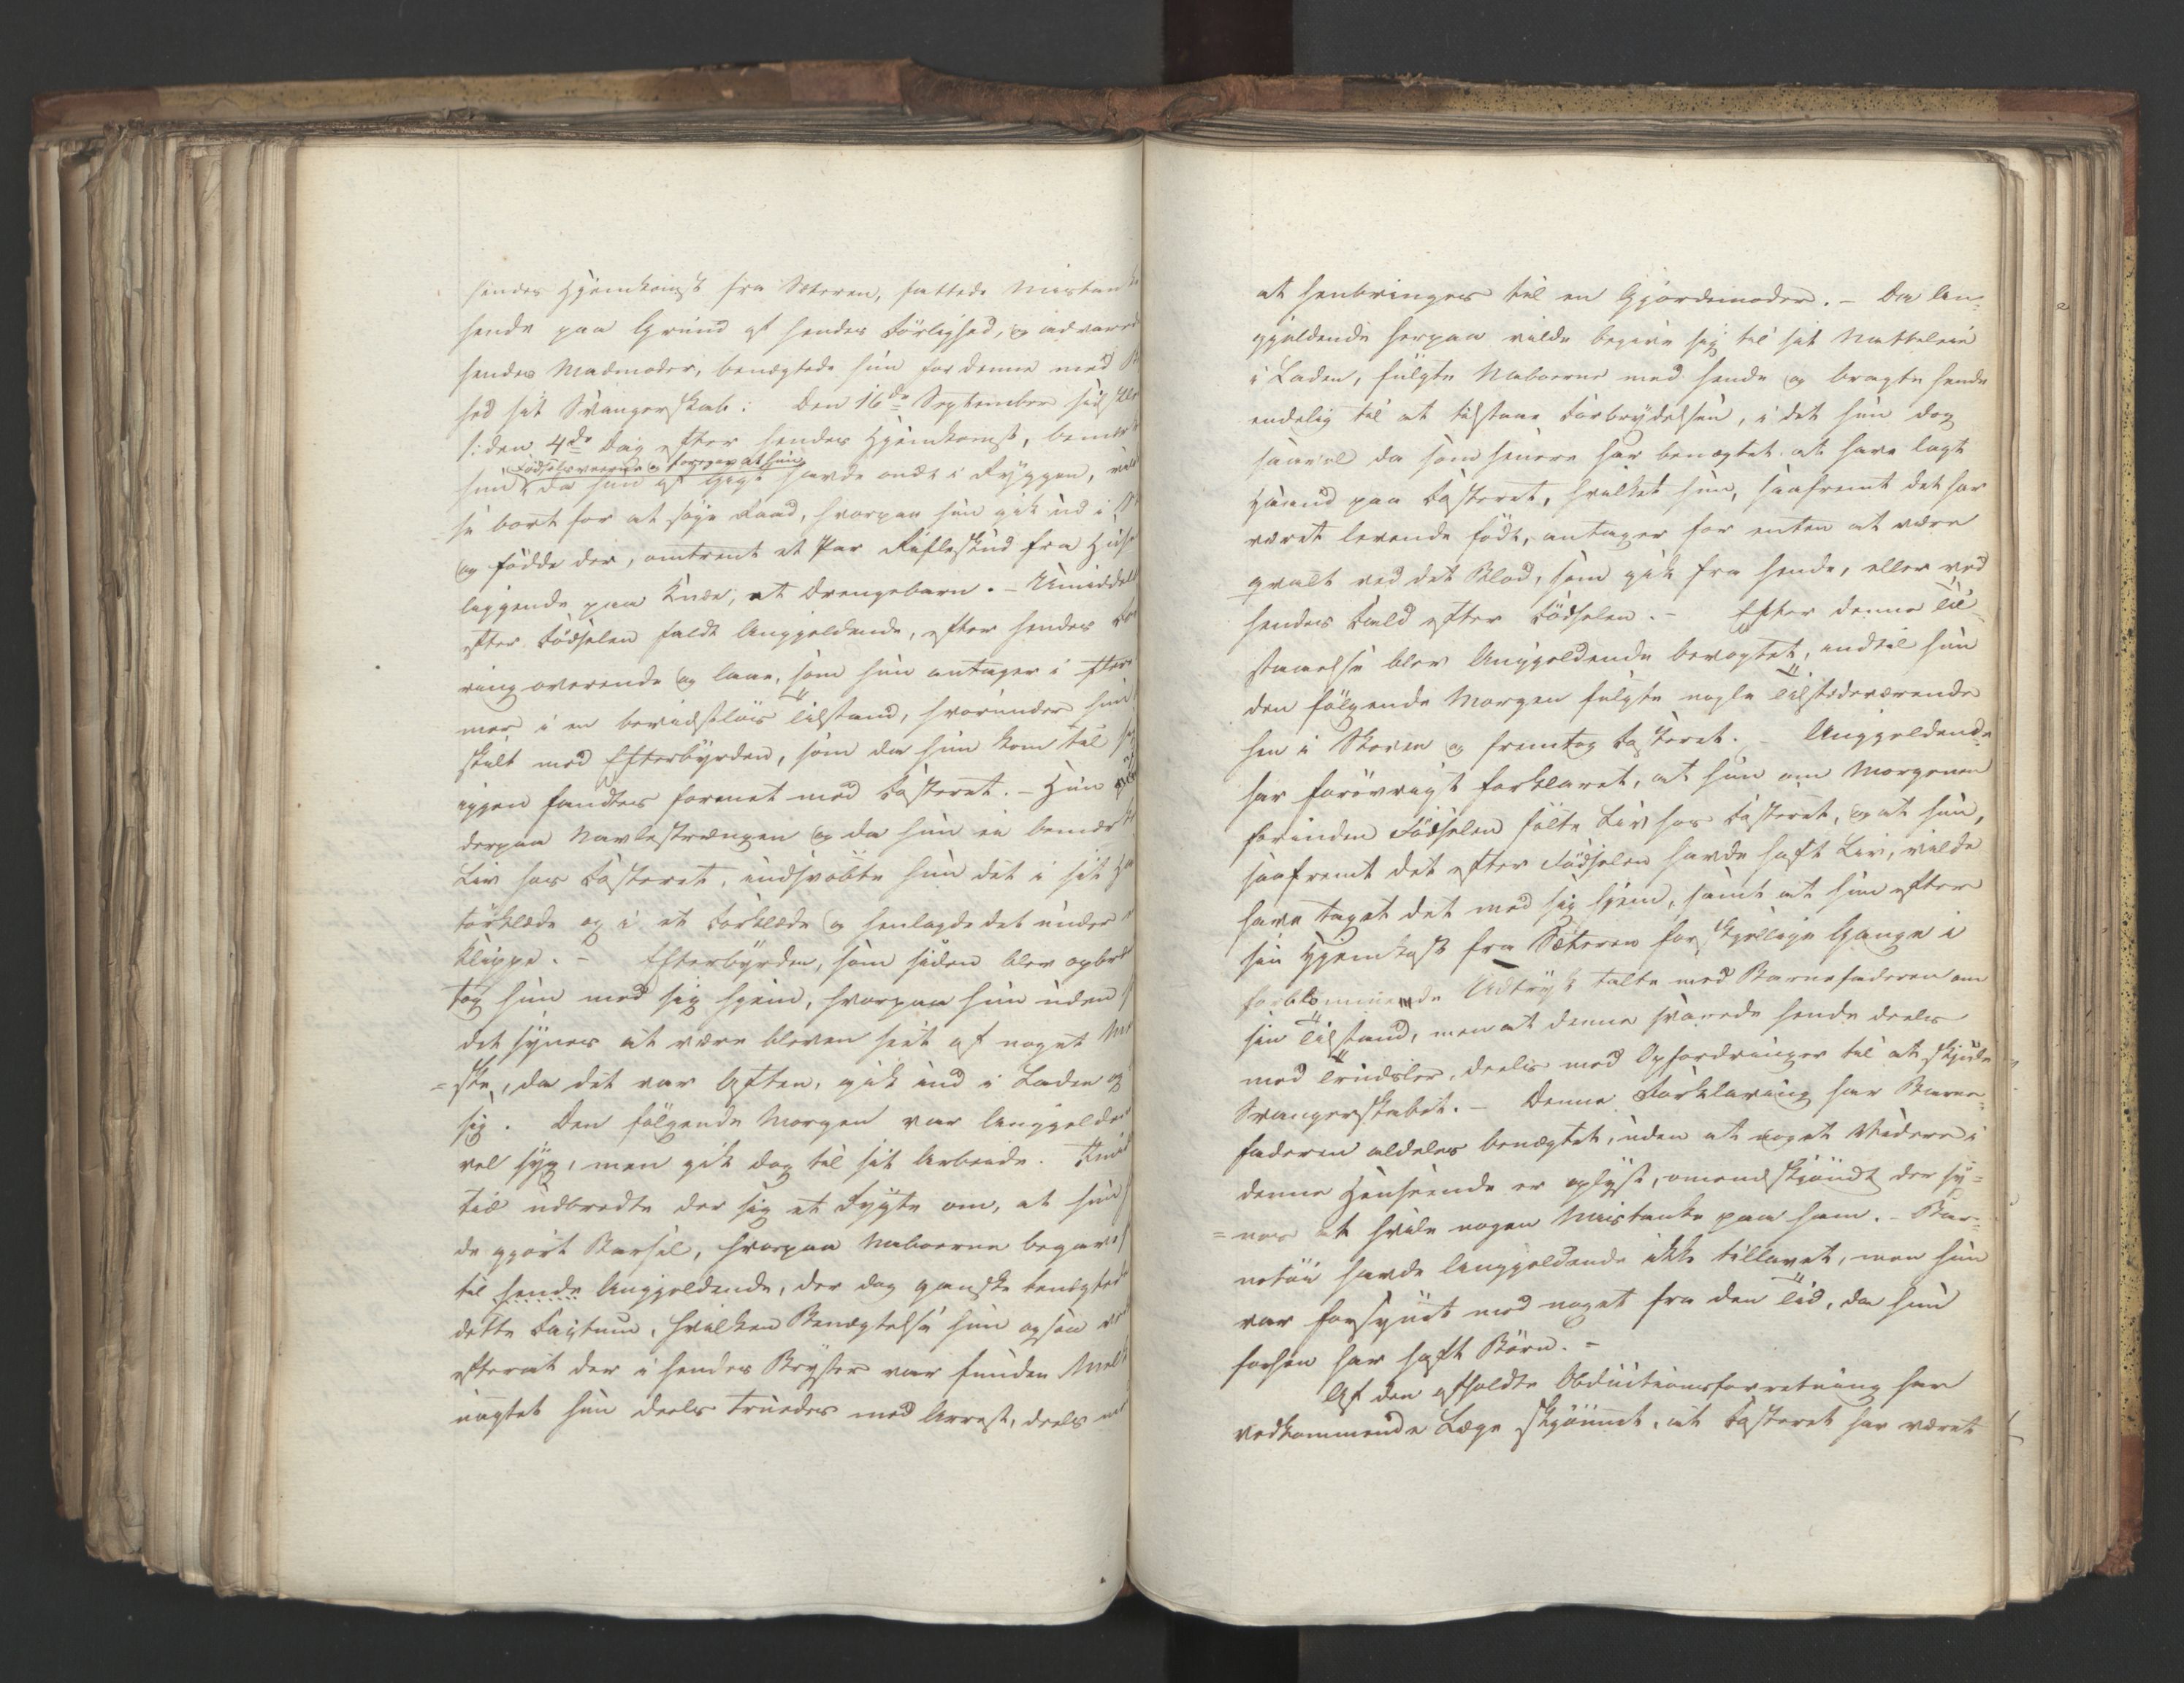 hendes Hjemkomst fra Sæteren, fattede Mistanke
hende paa Grund af hendes Førlighed, og advarede
hendes Madmoder, benægtede hun for denne med
hed sit Svangerskab: Den 16de September sidstl.
/: den 4de Dag efter hendes Hjemkomst, bemærk
Fødselsveerne og foregav at hun
hun, da hun af Gigt havde ondt i Ryggen, vil
se bort for at søge Raad, hvorpaa hun gik ud i
og fødde der, omtrent et Par Rifleskud fra Huse
liggende paa Knæ, et Drengebarn. - Umiddelb
efter Fødselen faldt Angjeldende, efter hendes For
ring overende og laae, som hun antager i flere
mer i en bevidstløs Tilstand, hvorunder hun
skilt med Efterbyrden, som da hun kom til sig
igjen fandtes forenet med Fosteret. - Hun
derpaa Navlestrængen og da hun ei bemærk
Liv hos Fosteret, indsvøbte hun det i sit Ha
tørklæde og i et Forklæde og henlagde det under
Klippe. - Efterbyrden, som siden blev opbr
tog hun med sig hjem, hvorpaa hun uden
det synes at være bleven seet af noget Me
=ske, da det var Aften, gik ind i Laden og
sig. Den følgende Morgen var Angjelden
vel syg, men gik dog til sit Arbeide. Imid
tid udbredte der sig et Rygte om, at hun
de gjort Barsel, hvorpaa Naboerne begave
til hende Angjeldende, der dog ganske benægtede
dette Factum, hvilken Benægtelse hun ogsaa
efterat der i hendes Bryster var funden Melk
uagtet hun deels truedes med Arrest, deels
at henbringes til en Gjordemoder. - Da An=
gjeldende herpaa vilde begive sig til sit Natteleie
i Laden, fulgte Naboerne med hende og bragte hende
endelig til at tilstaae Forbrydelsen, i det hun dog
saavel da som senere har benægtet at have lagt
Haand paa Fosteret, hvilket hun, saafremt det har
været levende født, antager for enten at være
qvalt ved det Blod, som gik fra hende, eller ved
hendes Fald efter Fødselen. - Efter denne Til
staaelse blev Angjeldende bevogtet, indtil hun
den følgende Morgen fulgte nogle Tilstedeværende
hen i Skoven og fremtog Fosteret. - Angjeldende
har forøvrigt forklaret, at hun om Morgenen
forinden Fødselen følte Liv hos Fosteret, og at hun,
saafremt det efter Fødselen havde haft Liv, vilde
have taget det med sig hjem, samt at hun efter
sin Hjemkost fra Sæteren forskjellige Gange i
forblommende Udtryk talte med Barnefaderen om
sin Tilstand, men at denne svarede hende deels
med Trudsler, deels med Opfordringer til at skjule
Svangerskabet. - Denne Forklaring har Barne=
faderen aldeles benægtet, uden at noget Videre i
denne Henseende er oplyst, omendskjøndt der sy=
=nes at hvile nogen Mistanke paa ham. - Bar=
netøi havde Angjeldende ikke tillavet, men hun
var forsynet med noget fra den Tid, da hun
forhen har haft Børn. =
Af den afholdte Obductionsforretning har
vedkommende Læge skjønnet, at Fosteret har været